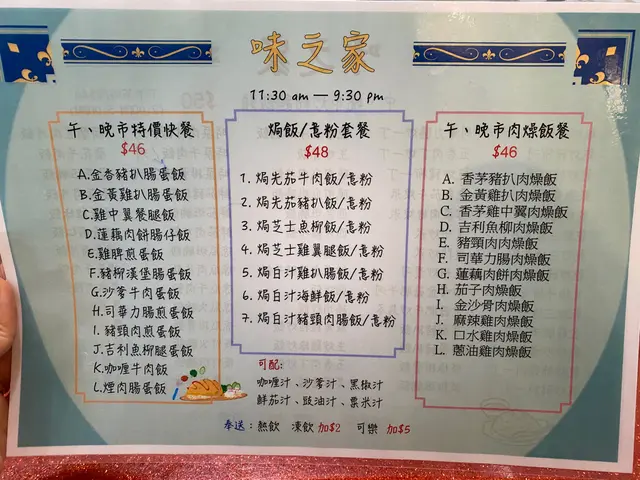 味之家
11:30 am — 9:30 pm
午、晚市特價快餐
$46
A.金香豬扒腸蛋飯
B.金黃雞扒腸蛋飯
C.雞中翼薯腿飯
D.蓮藕肉餅腸仔飯
E.雞脾煎蛋飯
F.豬柳漢堡腸蛋飯
G.沙爹牛肉蛋飯
H.司華力腸煎蛋飯
I.豬頸肉煎蛋飯
J.吉利魚柳腿蛋飯
K.咖喱牛肉飯
L.煙肉腸蛋飯
焗飯/意粉套餐
$48
1. 焗先茄牛肉飯/意粉
2. 焗先茄豬扒飯/意粉
3. 焗芝士魚柳飯/意粉
4. 焗芝士雞翼腿飯/意粉
5. 焗白汁雞扒腸飯/意粉
6. 焗白汁海鮮飯/意粉
7. 焗白汁豬頸肉腸飯/意粉
可配:
咖喱汁、沙爹汁、黑椒汁
鮮茄汁、豉油汁、粟米汁
午、晚市肉燥飯餐
$46
A. 香茅豬扒肉燥飯
B. 金黃雞扒肉燥飯
C. 香茅雞中翼肉燥飯
D. 吉利魚柳肉燥飯
E. 豬頸肉肉燥飯
F. 司華力腸肉燥飯
G. 蓮藕肉餅肉燥飯
H. 茄子肉燥飯
I. 金沙骨肉燥飯
J. 麻辣雞肉燥飯
K. 口水雞肉燥飯
L. 蔥油雞肉燥飯
奉送：熱飲 凍飲 加$2 可樂 加$5